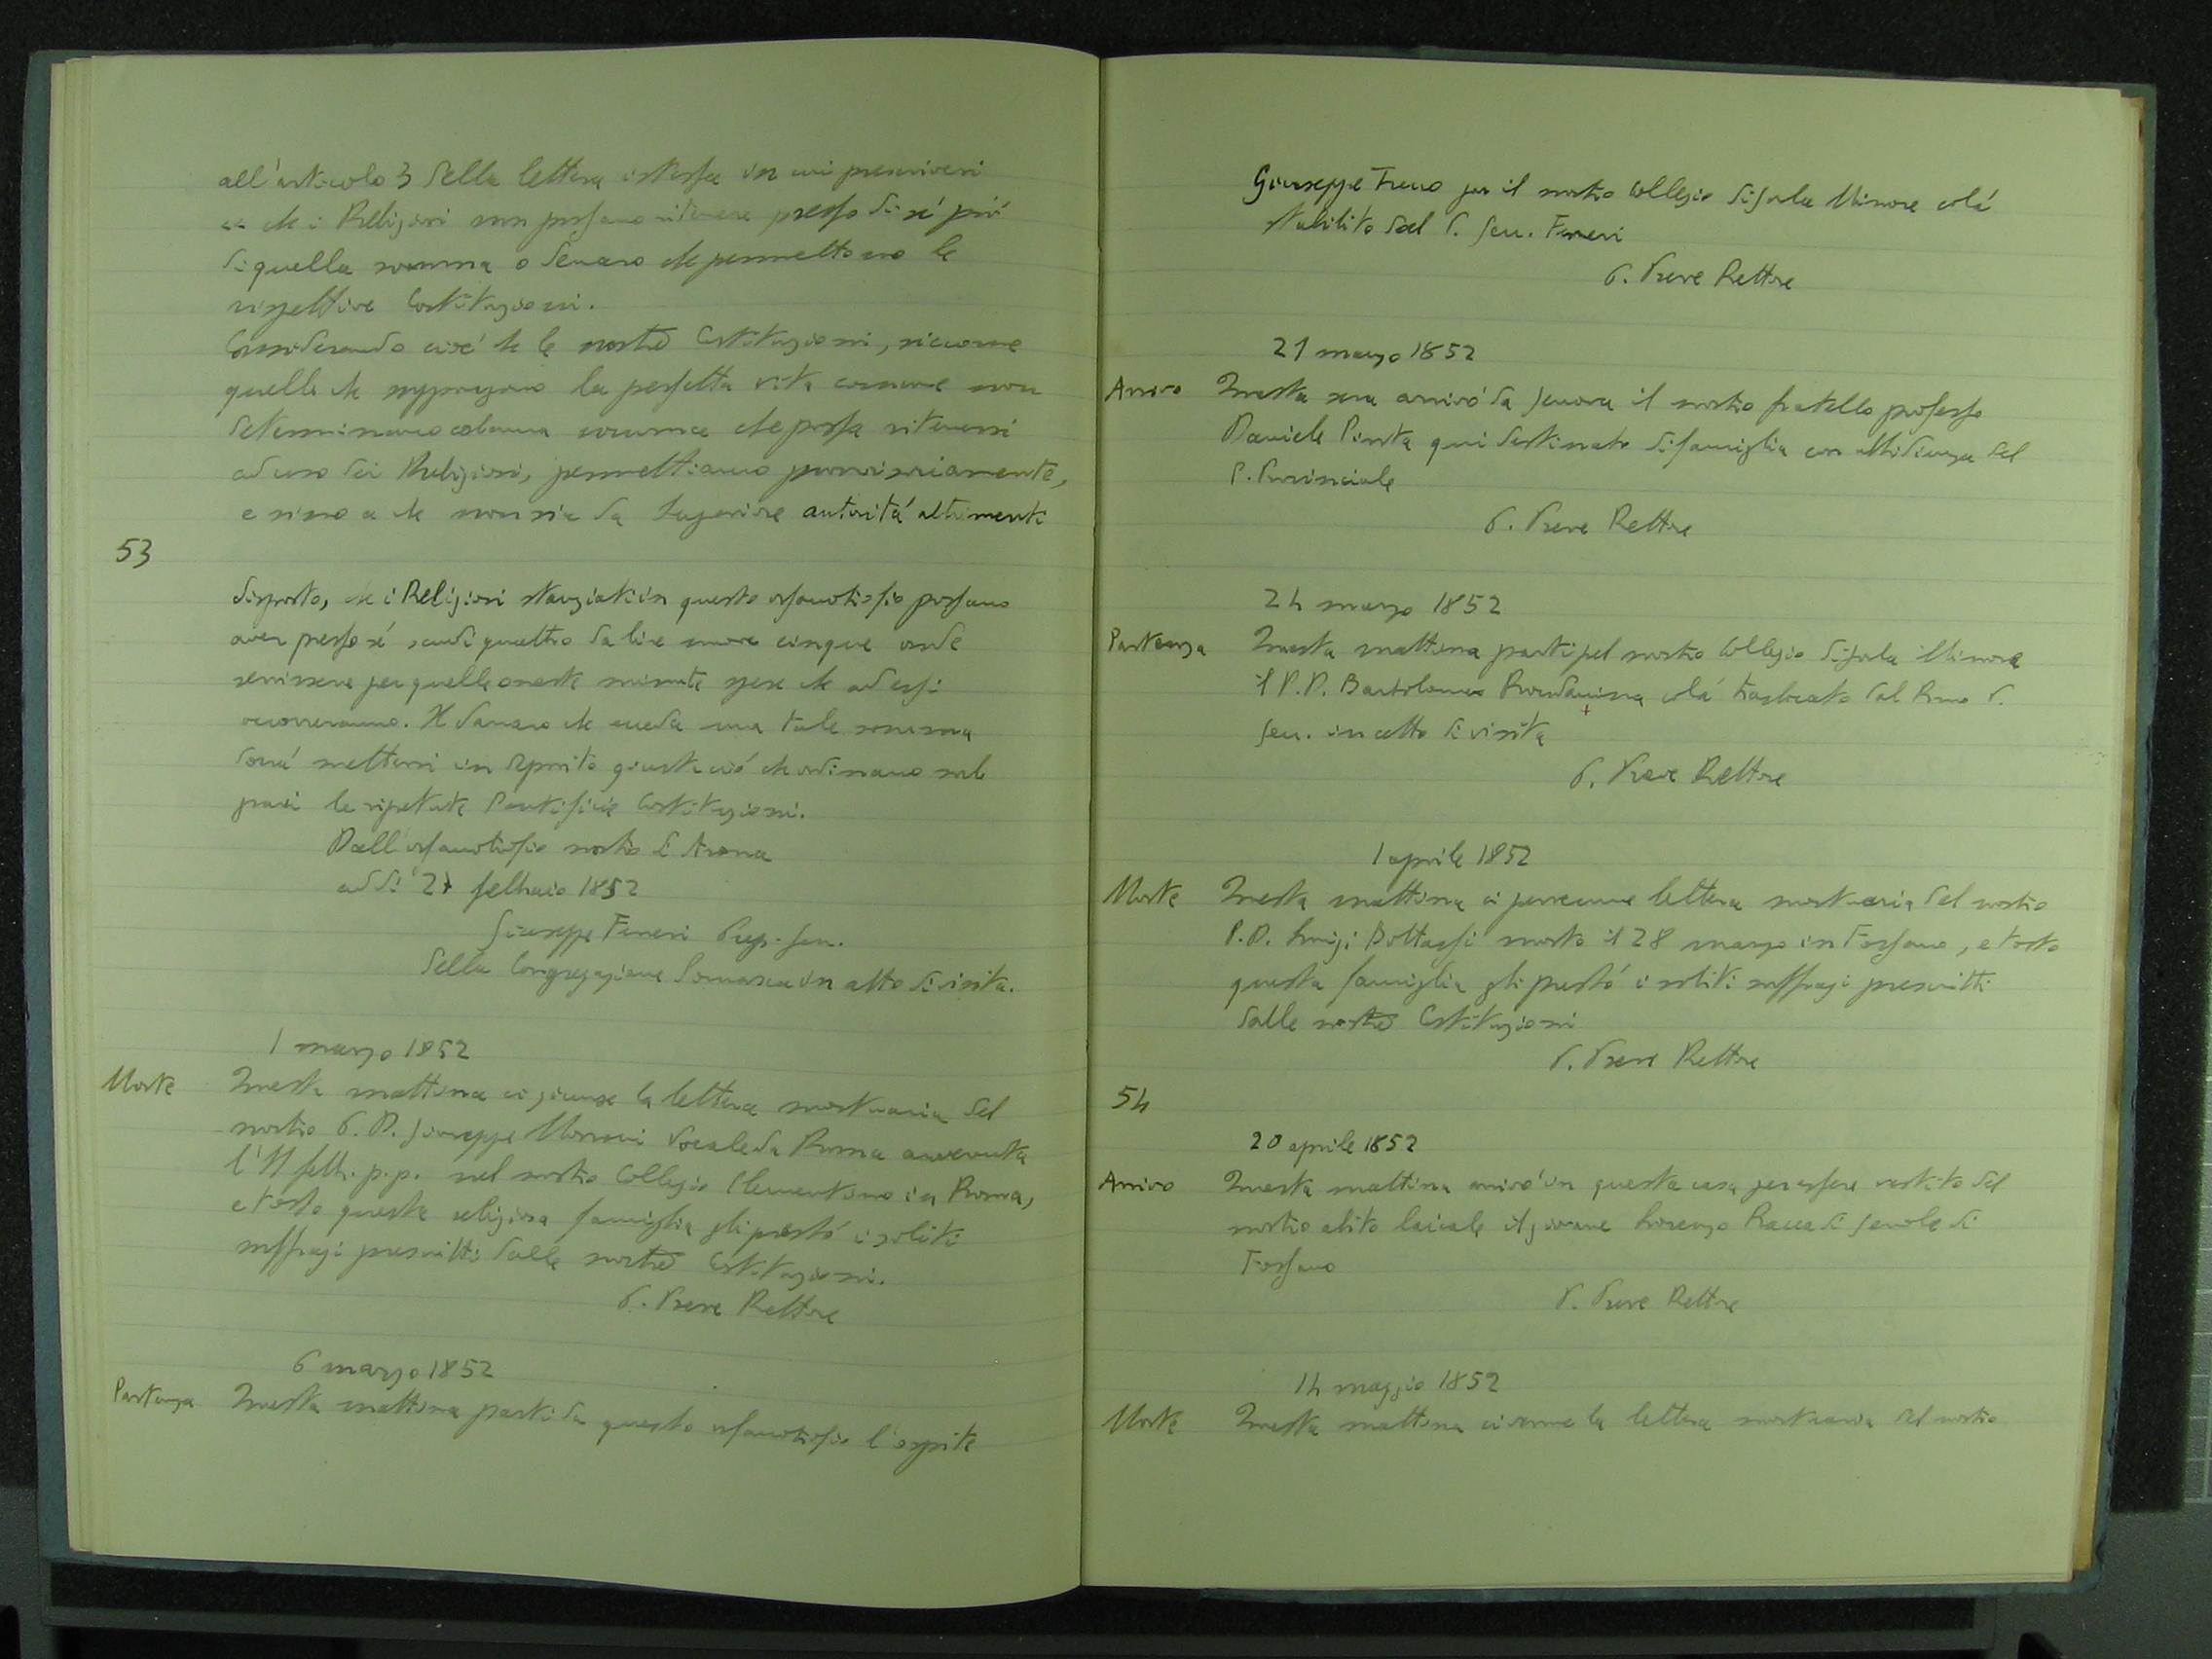 all'articolo 3 della lettera istessa in cui prescrivesi
« che i Religiosi non possano ritenere presso di sé più
di quella somma o denaro che permettono le
rispettive Costituzioni.
Considerando cioè che le nostre Costituzioni, siccome
quelle che suppongono la perfetta vita comune non
determinano alcuna somma che possa ritenersi
ad uso dei Religiosi, permettiamo provvisoriamente,
e sino a che non sia da Superiore autorità altrimenti
53
disposto, che i Religiosi stanziati in questo orfanotrofio possano
aver presso sé scudi quattro da lire nuove cinque onde
servirsene per quelle oneste minute spese che ad essi
occorreranno. Il danaro che ecceda una tale somma
dovrà mettersi in deposito giusta ciò che ordinano sul
pari le ripetute Pontificie Costituzioni.
Dall'orfanotrofio nostro di Arona
addì 27 febbraio 1852
Giuseppe Ferreri Prep. Gen.
della Congregazione Somasca in atto di visita.
1 marzo 1852
Morte
Questa mattina ci giunse la lettera mortuaria del
nostro P. D. Giuseppe Morroni Vocale da Roma avvenuta
l'11 febb. p.p. nel nostro Collegio Clementino in Roma,
e tosto questa religiosa famiglia gli prestò i soliti
suffragi prescritti dalle nostre Costituzioni.
P. Preve Rettore
6 marzo 1852
Partenza
Questa mattina partì da questo orfanotrofio l'ospite
Giuseppe per il nostro Collegio di Gorla Minore colà
stabilito dal P. Gen. Ferreri
P. Preve Rettore
21 marzo 1852
Arrivo
Questa sera arrivò da Genova il nostro fratello professo
Daniele Pirsta qui destinato di famiglia con obbidienza del
P. Provinciale
P. Preve Rettore
24 marzo 1852
Partenza
Questa mattina partì pel nostro Collegio di Gorla Minore
il P. D. Bartolomeo Rondanina colà traslocato dal Rmo P.
Gen. in atto di visita
P. Preve Rettore
1 aprile 1852
Morte
Questa mattina ci pervenne lettera mortuaria del nostro
P. D. Luigi Bottassi morto il 28 marzo in Fossano, e tosto
questa famiglia gli prestò i soliti suffragi prescritti
dalle nostre Costituzioni
P. Preve Rettore
54
20 aprile 1852
Arrivo
Questa mattina arrivò in questa casa per essere vestito del
nostro abito laicale il giovane Lorenzo Racca di Genole di
Fossano
P. Preve Rettore
14 maggio 1852
Morte
Questa mattina ci venne la lettera mortuaria del nostro